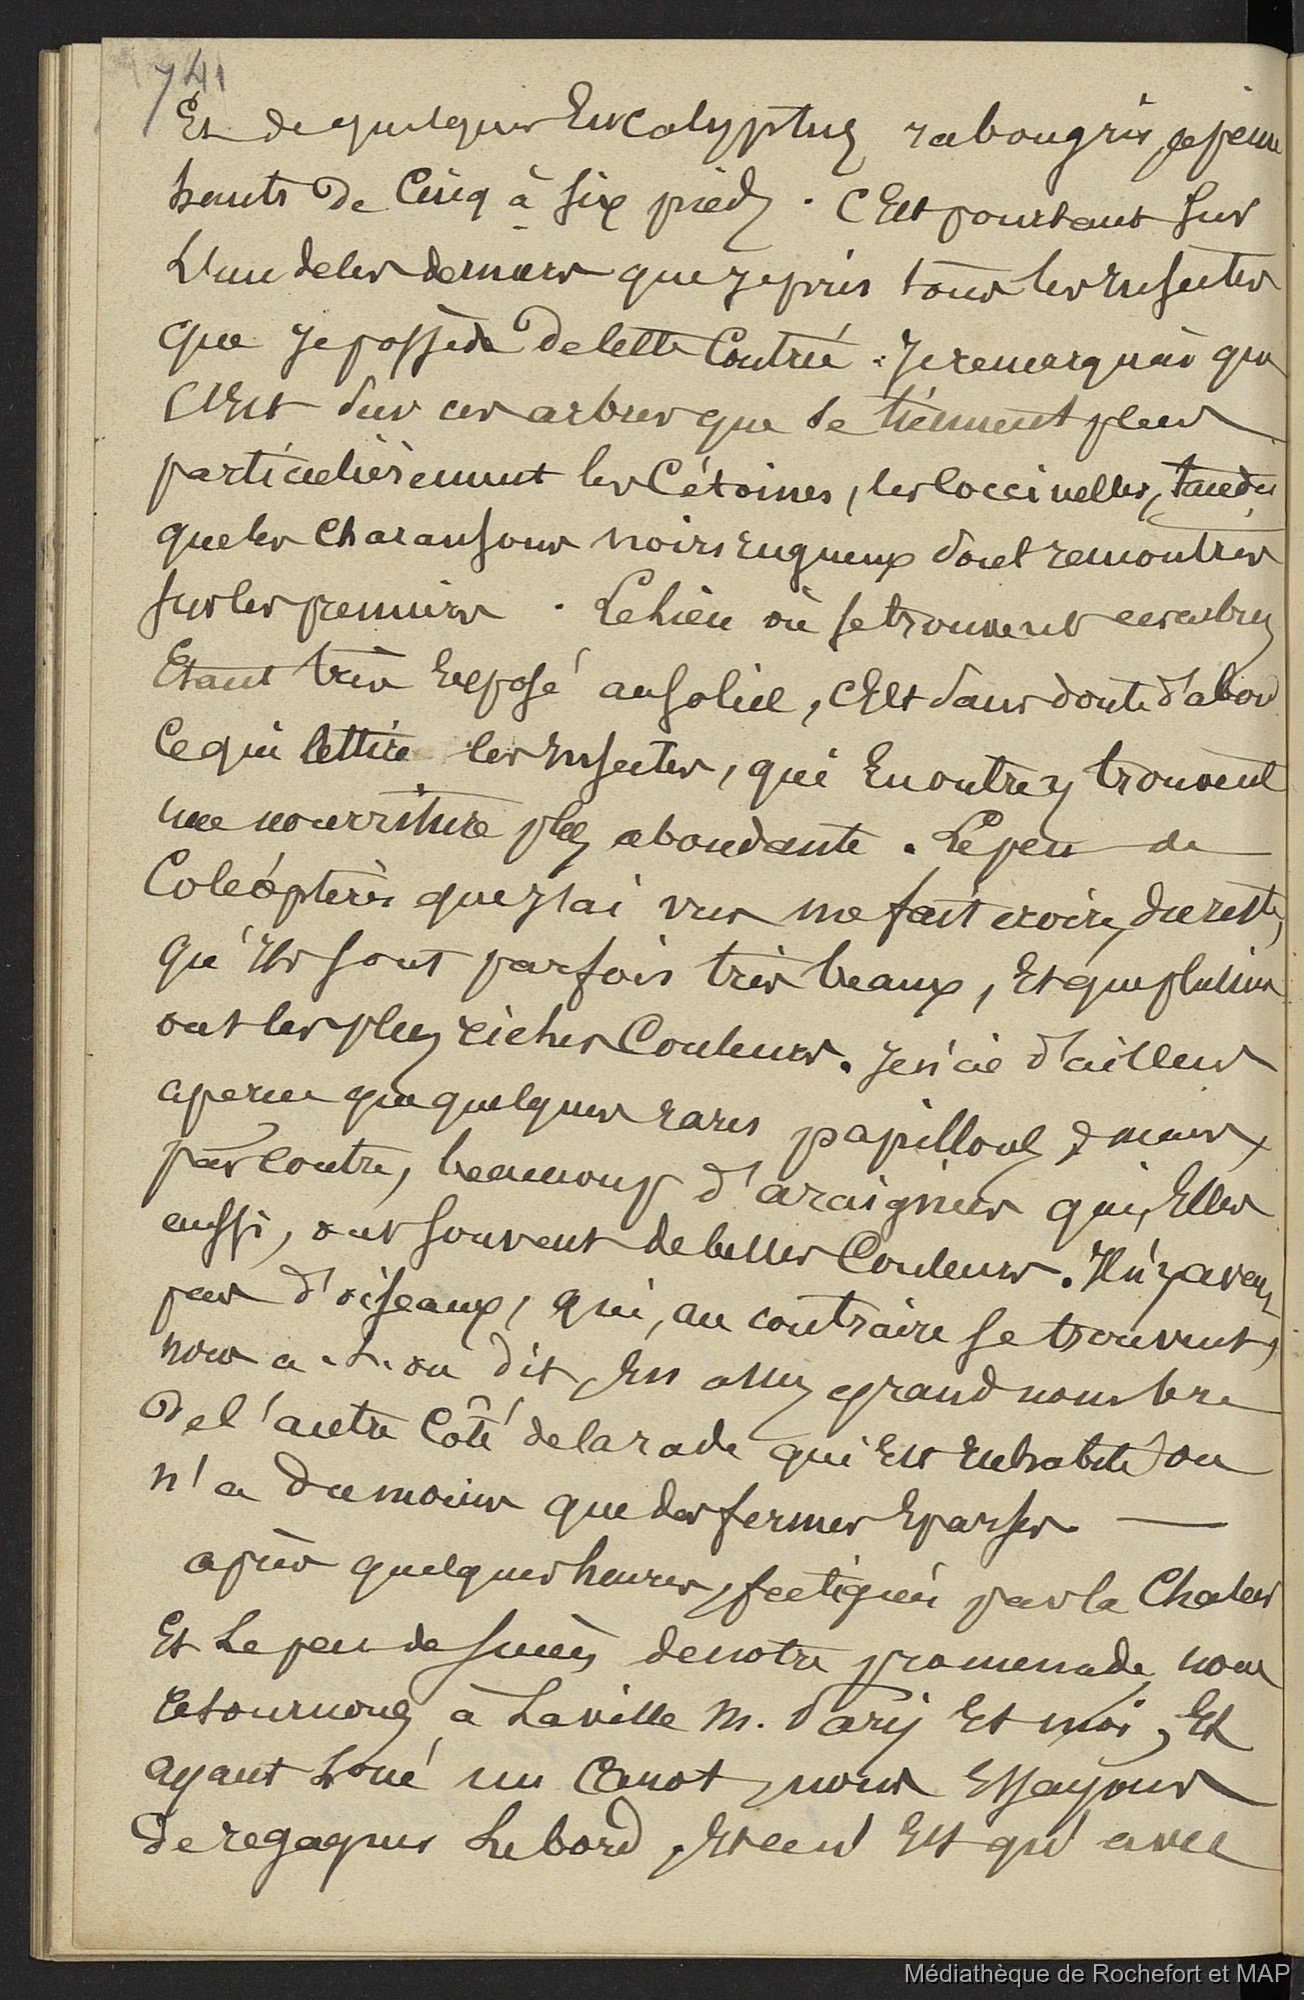 741
Et de quelques Eucalyptus rabougris, à peine
hauts de Cinq à six pieds. C'Est pourtant sur
L'un de ces derniers que je pris tous les Insectes
que je possède de cette Contrée. Je remarquai que
C'Est sur ces arbres que se tiennent plus
particulièrement les Cétoines, les Coccinelles, tandis
que les Charansons noirs rugueux sont rencontrés
sur les premiers. Le lieu où se trouvent ces arbres
Etant très Exposé au soleil, C'Est sans doute d'abord
Ce qui attire les Insectes, qui En outre y trouvent
une nourriture plus abondante. Le peu de
Coléoptères que j'ai vus me fait croire, du reste,
qu'Ils sont parfois très beaux, Et que plusieurs
ont les plus riches Couleurs. Je n'ai d'ailleurs
aperçu que quelques rares papillons, mais,
par contre, beaucoup d'araignées qui, Elles
aussi, ont souvent de belles Couleurs. Il n'y a
pas d'oiseaux, qui, au contraire se trouvent,
nous a-t-on dit, En assez grand nombre
De l'autre Côté de la rade qui Est Inhabité ou
n'a du moins que des fermes Eparses —
après quelques heures, fatigués par la Chaleur
Et Le peu de succès de notre promenade, nous
retournons à La ville M. Et moi, Et
ayant Loué un Canot, nous Essayons
De regagner Le bord. Et ce n'Est qu'avec
Médiathèque de Rochefort et MAP